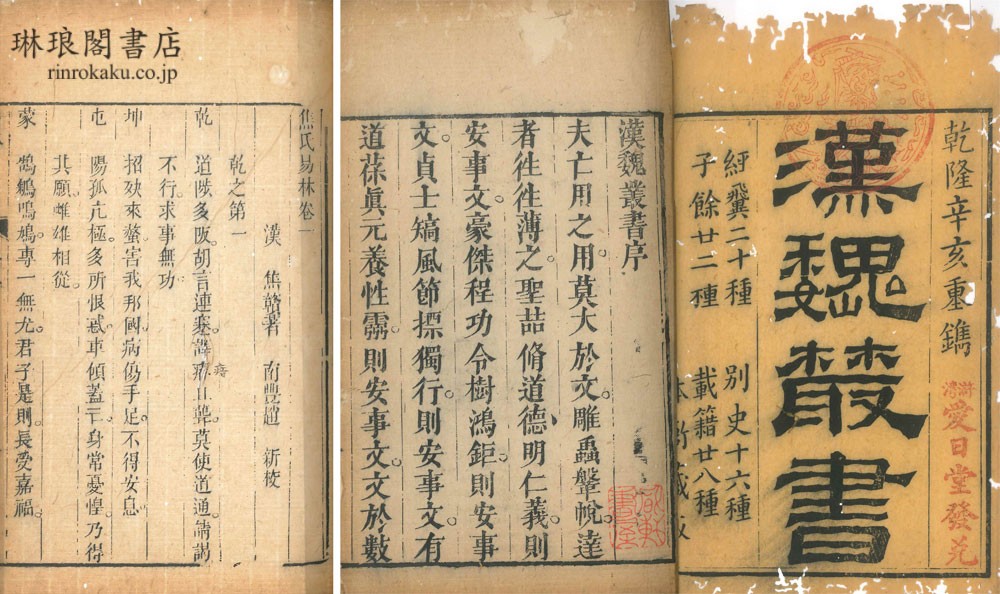 琳琅閣書店
rinrokaku.co.jp
乾隆辛亥重鐫
愛日堂發兌
漢魏叢書
經翼二十種 別史十六種
子餘廿二種 載籍廿八種
漢魏叢書序
夫亡用之用莫大於文。雕蟲鞶帨。達
者徃徃薄之。聖喆脩道德。明仁義。則
安事文。豪傑程功令。樹鴻鉅。則安事
文。貞士矯風節。摽獨行。則安事文。有
道葆眞元養性霛。則安事文。文於數
焦氏易林卷一
漢 焦贛著 南豐趙 新校
乾之第一
乾 道陟多阪。胡言連蹇。譯瘖且聾。莫使道通。請謁
不行。求事無功
坤 招殃來螫。害我邦國。病傷手足。不得安息。
屯 陽孤亢極。多所恨惑。車傾蓋亡。身常憂惶。乃得
其願。雌雄相從
蒙 鳴鳩。專一無尤。君子是則。長受嘉福。